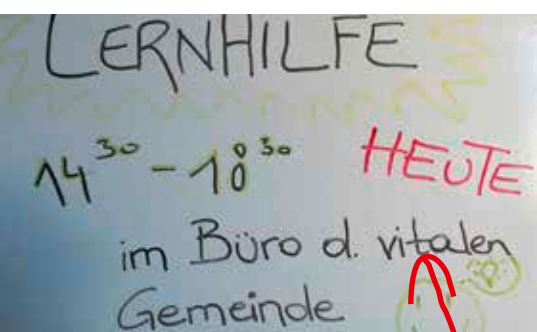 LERNHILFE
14³⁰ - 18³⁰ HEUTE
im Büro d. vitalen
Gemeinde